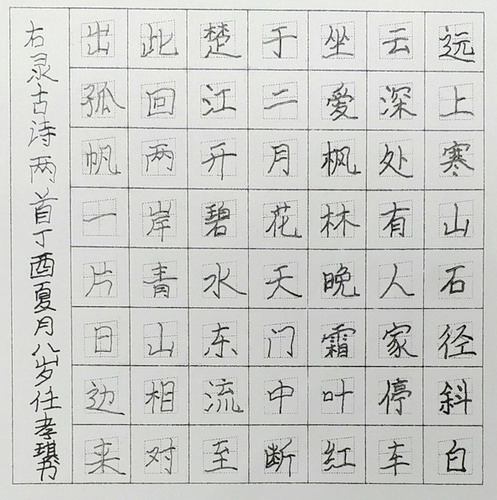 远上寒山石径斜白
云深处有人家停车
坐爱枫林晚霜叶红
于二月花天门中断
楚江开碧水东流至
此回两岸青山相对
出孤帆一片日边来
右录古诗两首丁酉夏月八岁任孝琪书